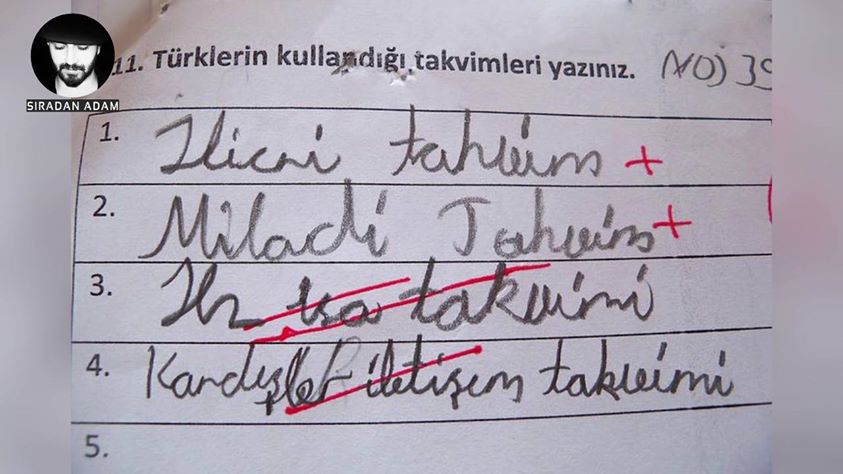 SIRADAN ADAM
11. Türklerin kullandığı takvimleri yazınız. NO) 39
1. Hicri takvim +
2. Miladi Takvim +
3. Hz isa takvimi
4. Kardeşler iletişim takvimi
5.